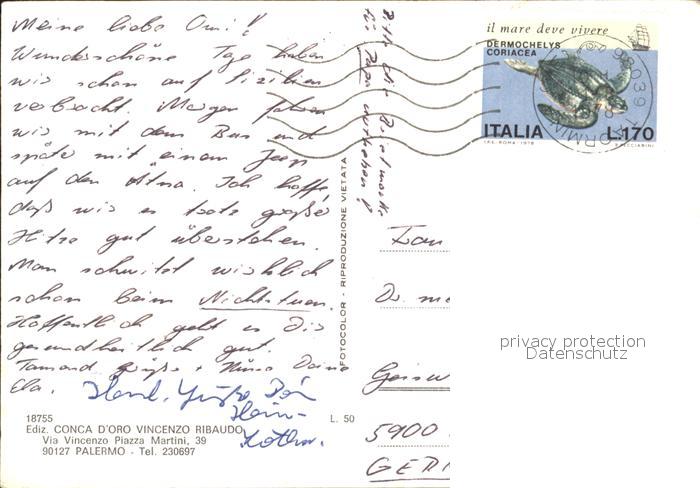 Meine liebe Omi!
Wunderschöne Tage haben
wir schon auf Sizilien
verbracht. Morgen fahren
wir mit dem Bus und
später mit einem Jeep
auf den Ätna. Ich hoffe,
daß wir es trotz großer
Hitze gut überstehen.
Man schwitzt wirklich
schon beim Nichtstun.
Hoffentlich geht es Dir
gesundheitlich gut.
Tausend Grüße + Küsse Deine
Ela.
Herzl. Grüße Dein
Bitte die Briefmarke
für Papa aufheben!
il mare deve vivere
DERMOCHELYS
CORIACEA
ITALIA L.170
I.P.S. ROMA 1978
98039 TAORMINA
FOTOCOLOR - RIPRODUZIONE VIETATA
Frau
Dr. me
5900
GER
privacy protection
Datenschutz
18755 L. 50
Ediz. CONCA D'ORO VINCENZO RIBAUDO
Via Vincenzo Piazza Martini, 39
90127 PALERMO - Tel. 230697